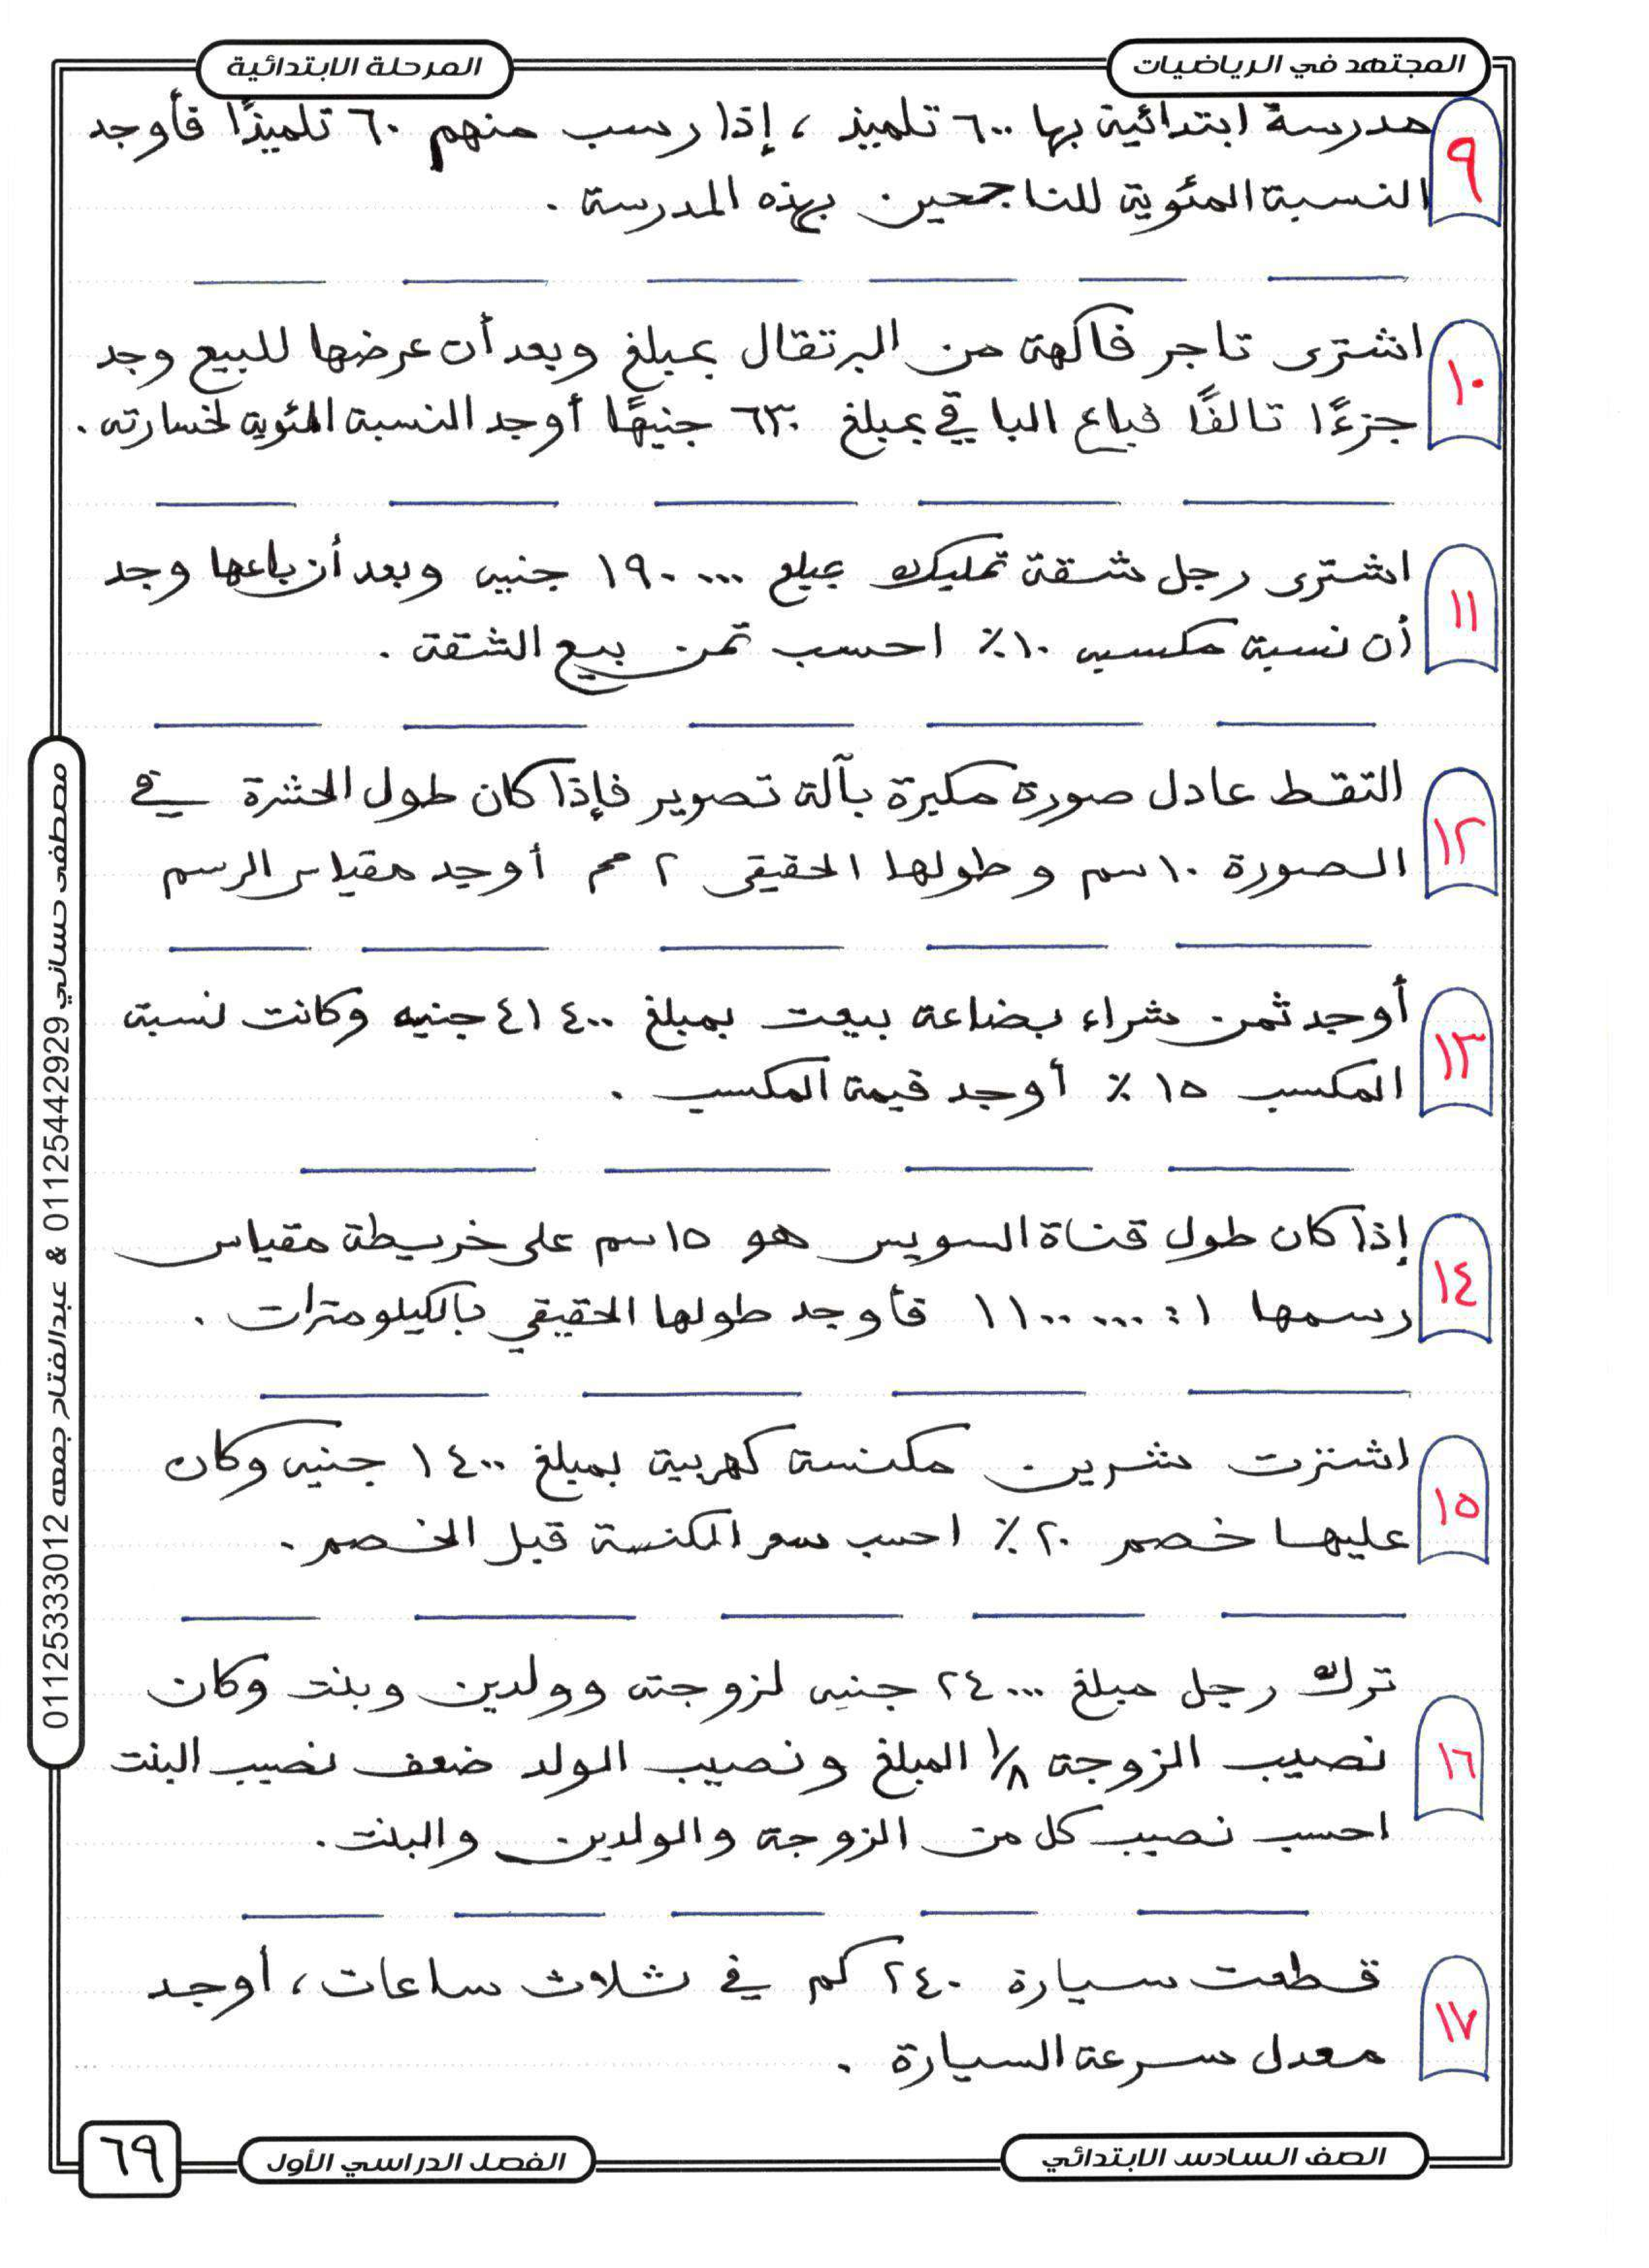 المجتهد في الرياضيات
المرحلة الابتدائية
٩
مدرسة ابتدائية بها ٦٠٠ تلميذ ، إذا رسب منهم ٦٠ تلميذًا فأوجد
النسبة المئوية للناجحين بهذه المدرسة .
١٠
اشترى تاجر فاكهة من البرتقال بمبلغ وبعد أن عرضها للبيع وجد
جزءًا تالفًا فباع الباقي بمبلغ ٦٣٠ جنيهًا أوجد النسبة المئوية لخسارته .
١١
اشترى رجل شقة تمليك بمبلغ ١٩٠٠٠٠ جنيه وبعد أن باعها وجد
أن نسبة مكسبه ١٠٪ احسب ثمن بيع الشقة .
١٢
التقط عادل صورة مكبرة بآلة تصوير فإذا كان طول الحشرة في
الصورة ١٠ سم وطولها الحقيقى ٢ مم أوجد مقياس الرسم
١٣
أوجد ثمن شراء بضاعة بيعت بمبلغ ٤١٤٠٠ جنيه وكانت نسبة
المكسب ١٥ ٪ أوجد قيمة المكسب .
١٤
إذا كان طول قناة السويس هو ١٥ سم على خريطة مقياس
رسمها ١ : ١١٠٠٠٠٠ فأوجد طولها الحقيقي بالكيلومترات .
١٥
اشترت شرين مكنسة كهربية بمبلغ ١٤٠٠ جنيه وكان
عليها خصم ٢٠٪ احسب سعر المكنسة قبل الخصم .
١٦
ترك رجل مبلغ ٢٤٠٠٠ جنيه لزوجته وولدين وبنت وكان
نصيب الزوجة ١/٨ المبلغ ونصيب الولد ضعف نصيب البنت
احسب نصيب كل من الزوجة والولدين والبنت .
١٧
قطعت سيارة ٢٤٠ كم في ثلاث ساعات ، أوجد
معدل سرعة السيارة .
الصف السادس الابتدائي
الفصل الدراسي الأول
٦٩
مصطفى حساني 01125442929 & عبدالفتاح جمعه 01125333012